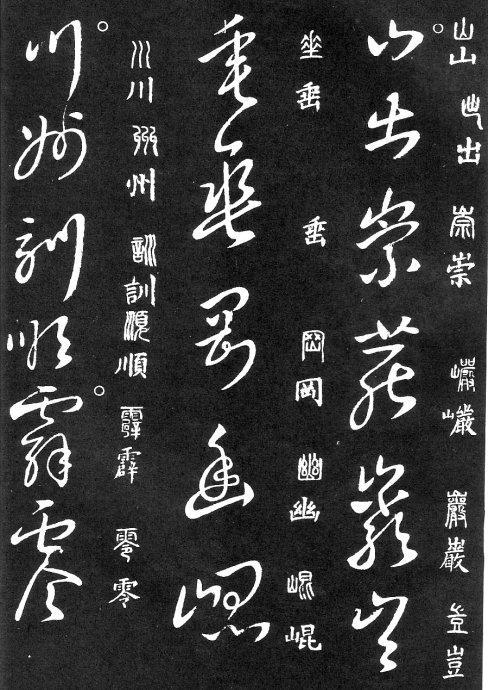 山山出出崇崇巖巖巖巖豈豈
山出崇巖巖豈
垂垂垂岡岡幽幽崐崐
垂垂岡幽崐
川川州州訓訓順順霹霹零零
川州訓順霹零